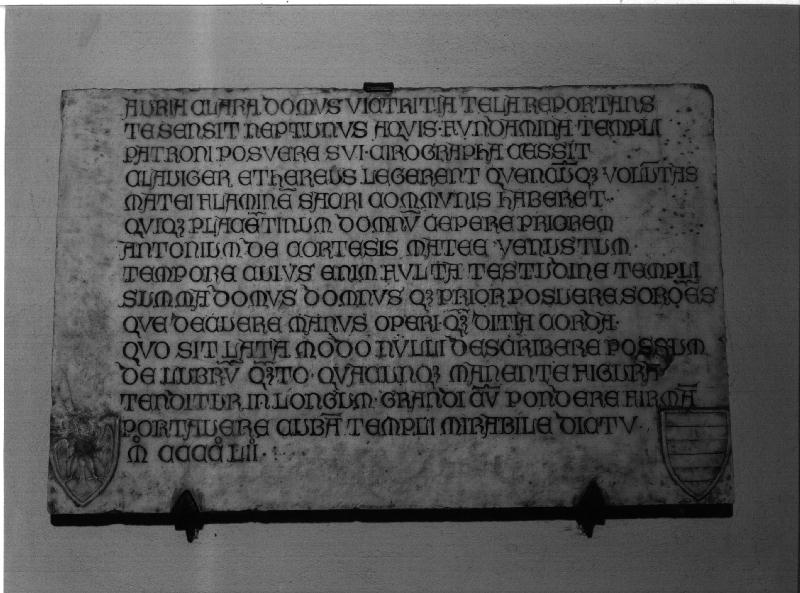 AURIA CLARA DOMVS VICTRITIA TELA REPORTANS
TE SENSIT NEPTUNVS AQVIS·FVNDAMINA TEMPLI
PATRONI POSVERE SVI·CIROGRAPHA CESSIT
CLAVIGER ETHEREUS LEGERENT VOLŪTAS
MATEI FLAMINĒ SACRI COMMVNIS HABERET·
QVIQꝫ PLACĒTINUM DOMNŪ CEPERE PRIOREM
ANTONIUM DE CORTESIS MATEE VENUSTUM·
TEMPORE CUIVS ENIM FVLTA TESTUDINE TEMPLI
SUMMA DOMVS DOMNVS Qꝫ PRIOR POSUERE
QVE DECUERE MANVS OPERI·Qꝫ DITIA CORDA·
QVO SIT LATA MODO NVLLI DESCRIBERE POSSUM
DE LUBRŪ TO·QVACUNQꝫ MANENTE FIGURA
TENDITUR IN LONGUM·GRANDI CŪ PONDERE FIRMĀ
PORTAVERE CUBĀ TEMPLI MIRABILE DICTV·
M̊ CCCC LII·